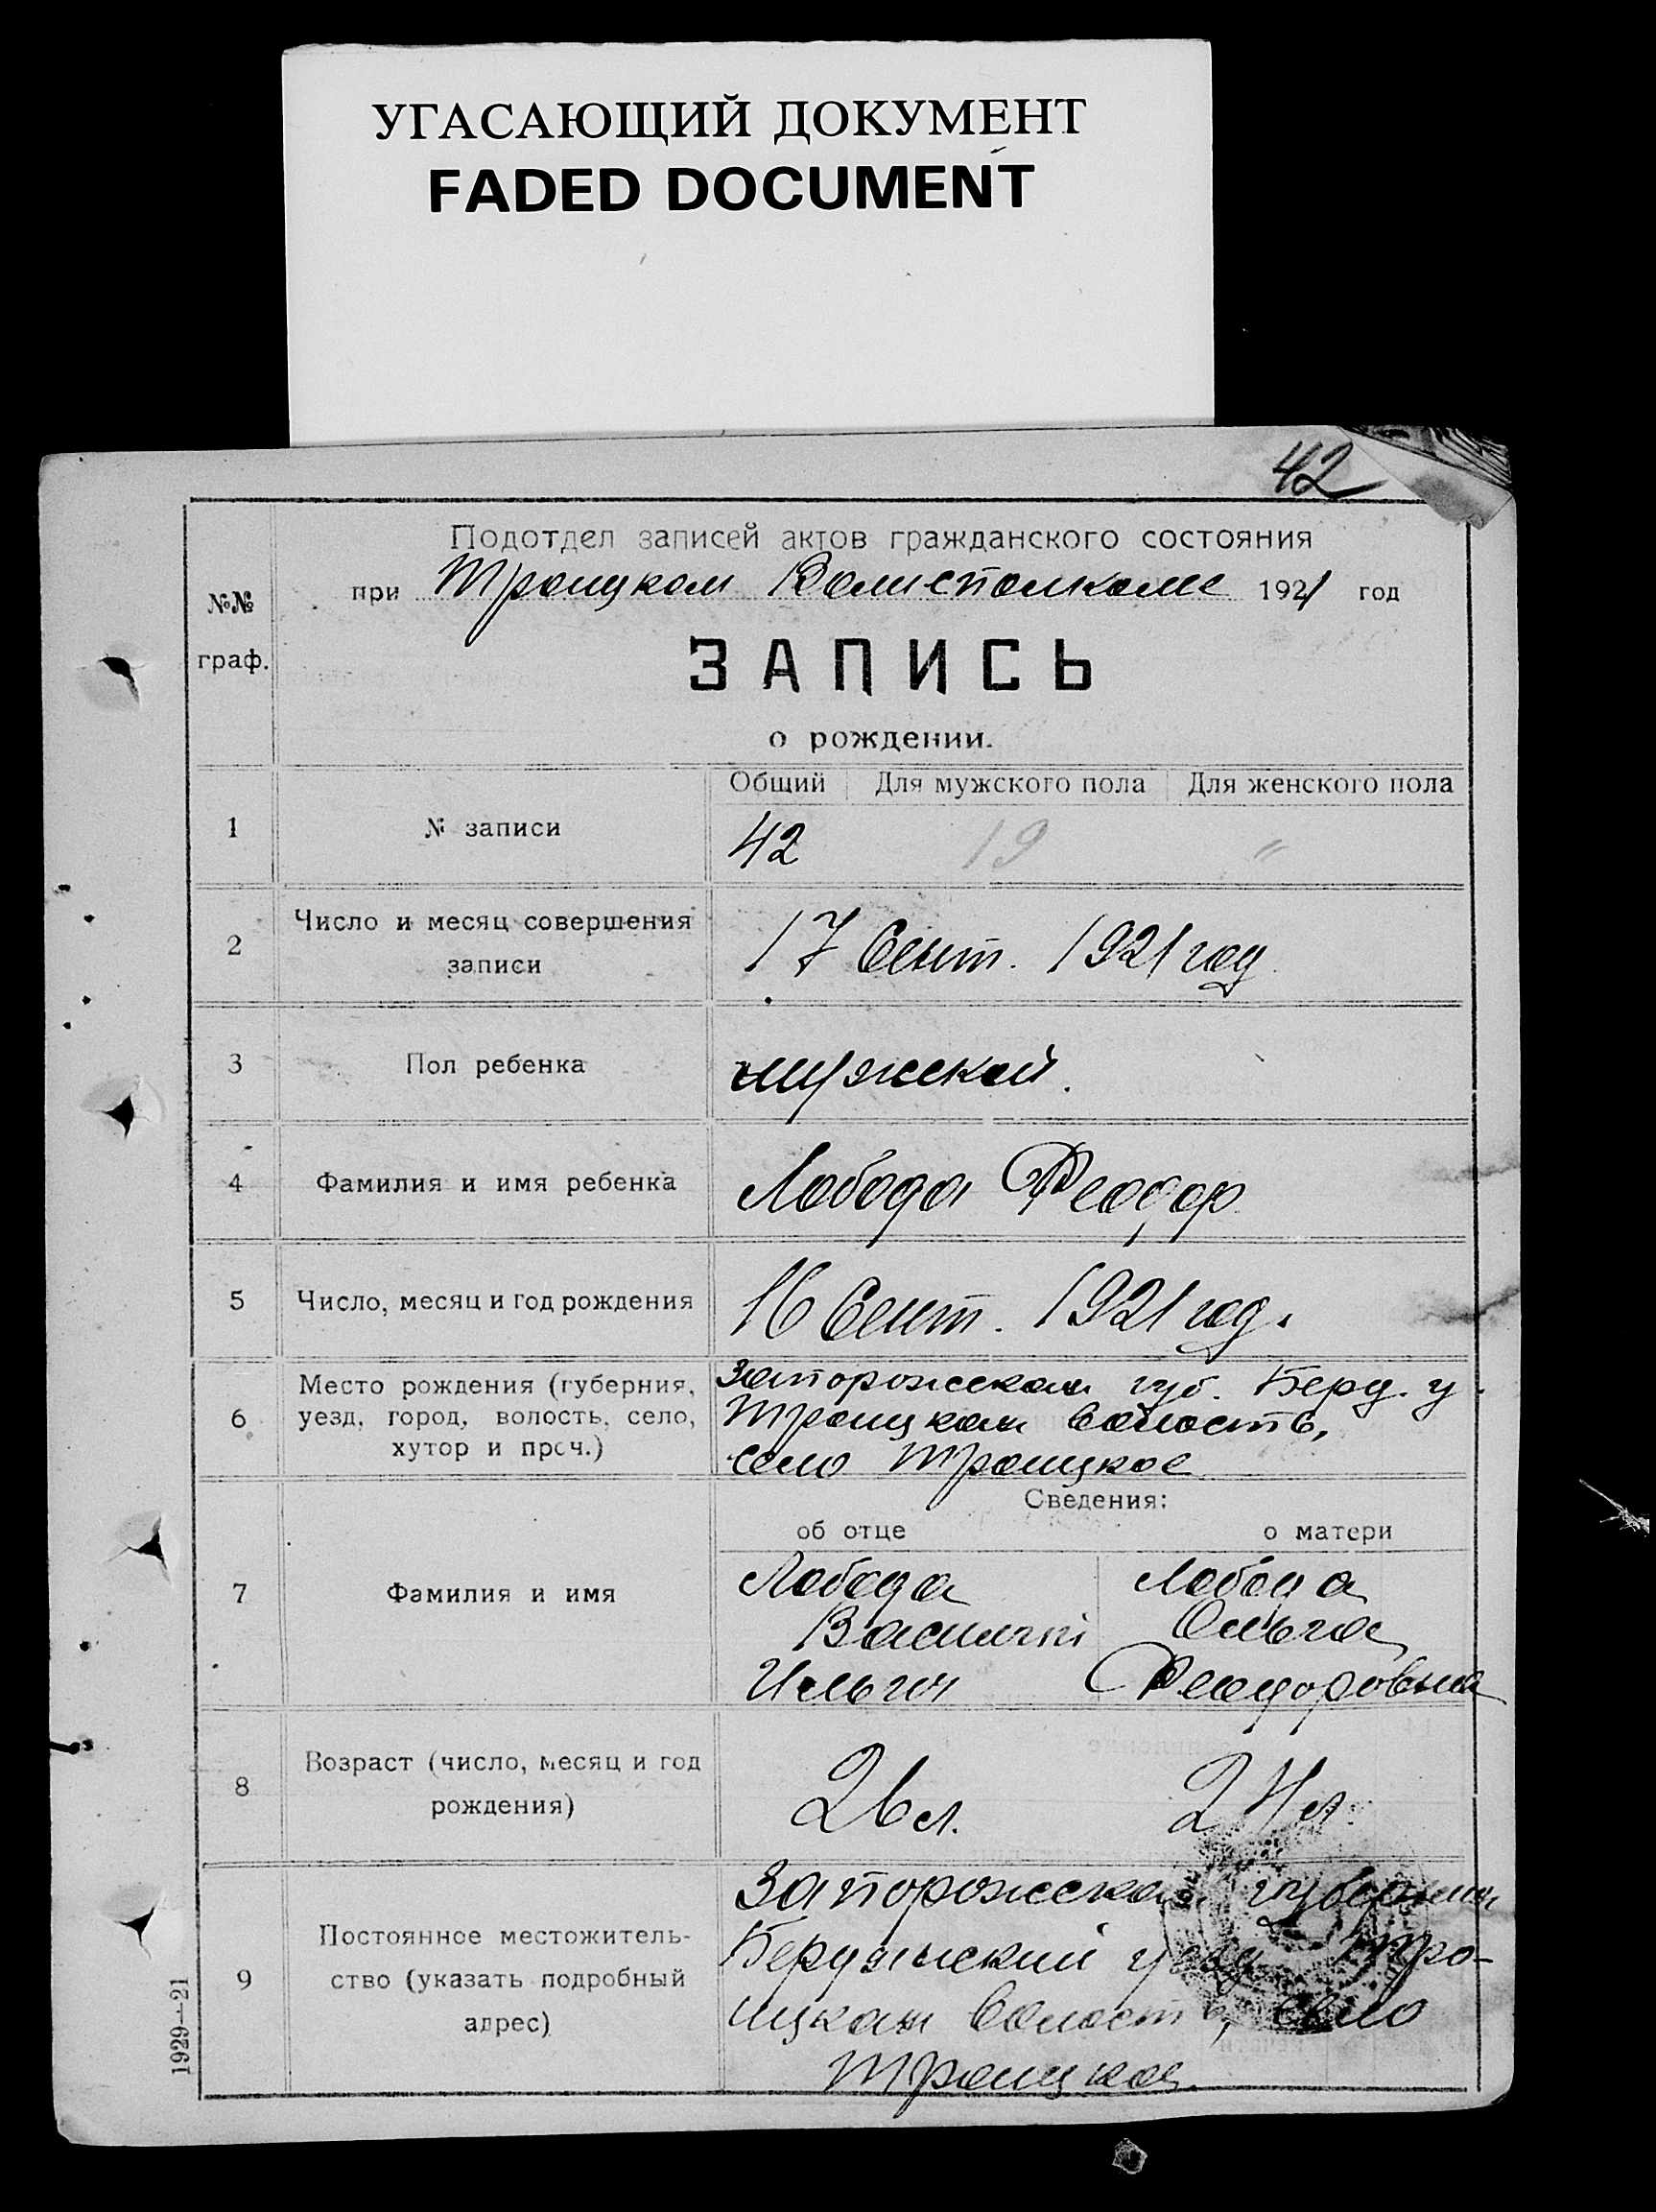 УГАСАЮЩИЙ ДОКУМЕНТ
FADED DOCUMENT
42
Подотдел записей актов гражданского состояния
при Троицком Волисполкоме 1921 год
№№
граф.
ЗАПИСЬ
о рождении.
Общий Для мужского пола Для женского пола
1 № записи 42 19 "
2 Число и месяц совершения
записи
17 Сент. 1921 год
3 Пол ребенка мужской.
4 Фамилия и имя ребенка Лобода Феодор
5 Число, месяц и год рождения 16 Сент. 1921 год.
6 Место рождения (губерния,
уезд, город, волость, село,
хутор и проч.)
Запорожская губ. Берд. у.
Троицкая волость,
село Троицкое
Сведения:
об отце о матери
7 Фамилия и имя
Лобода Лобода
Василий Ольга
Илья Феодоровна
8 Возраст (число, месяц и год
рождения)
26 л. 24 л.
9 Постоянное местожитель-
ство (указать подробный
адрес)
Запорожская губерния
Бердянский уезд Тро-
ицкая волость, село
Троицкое.
1929—21